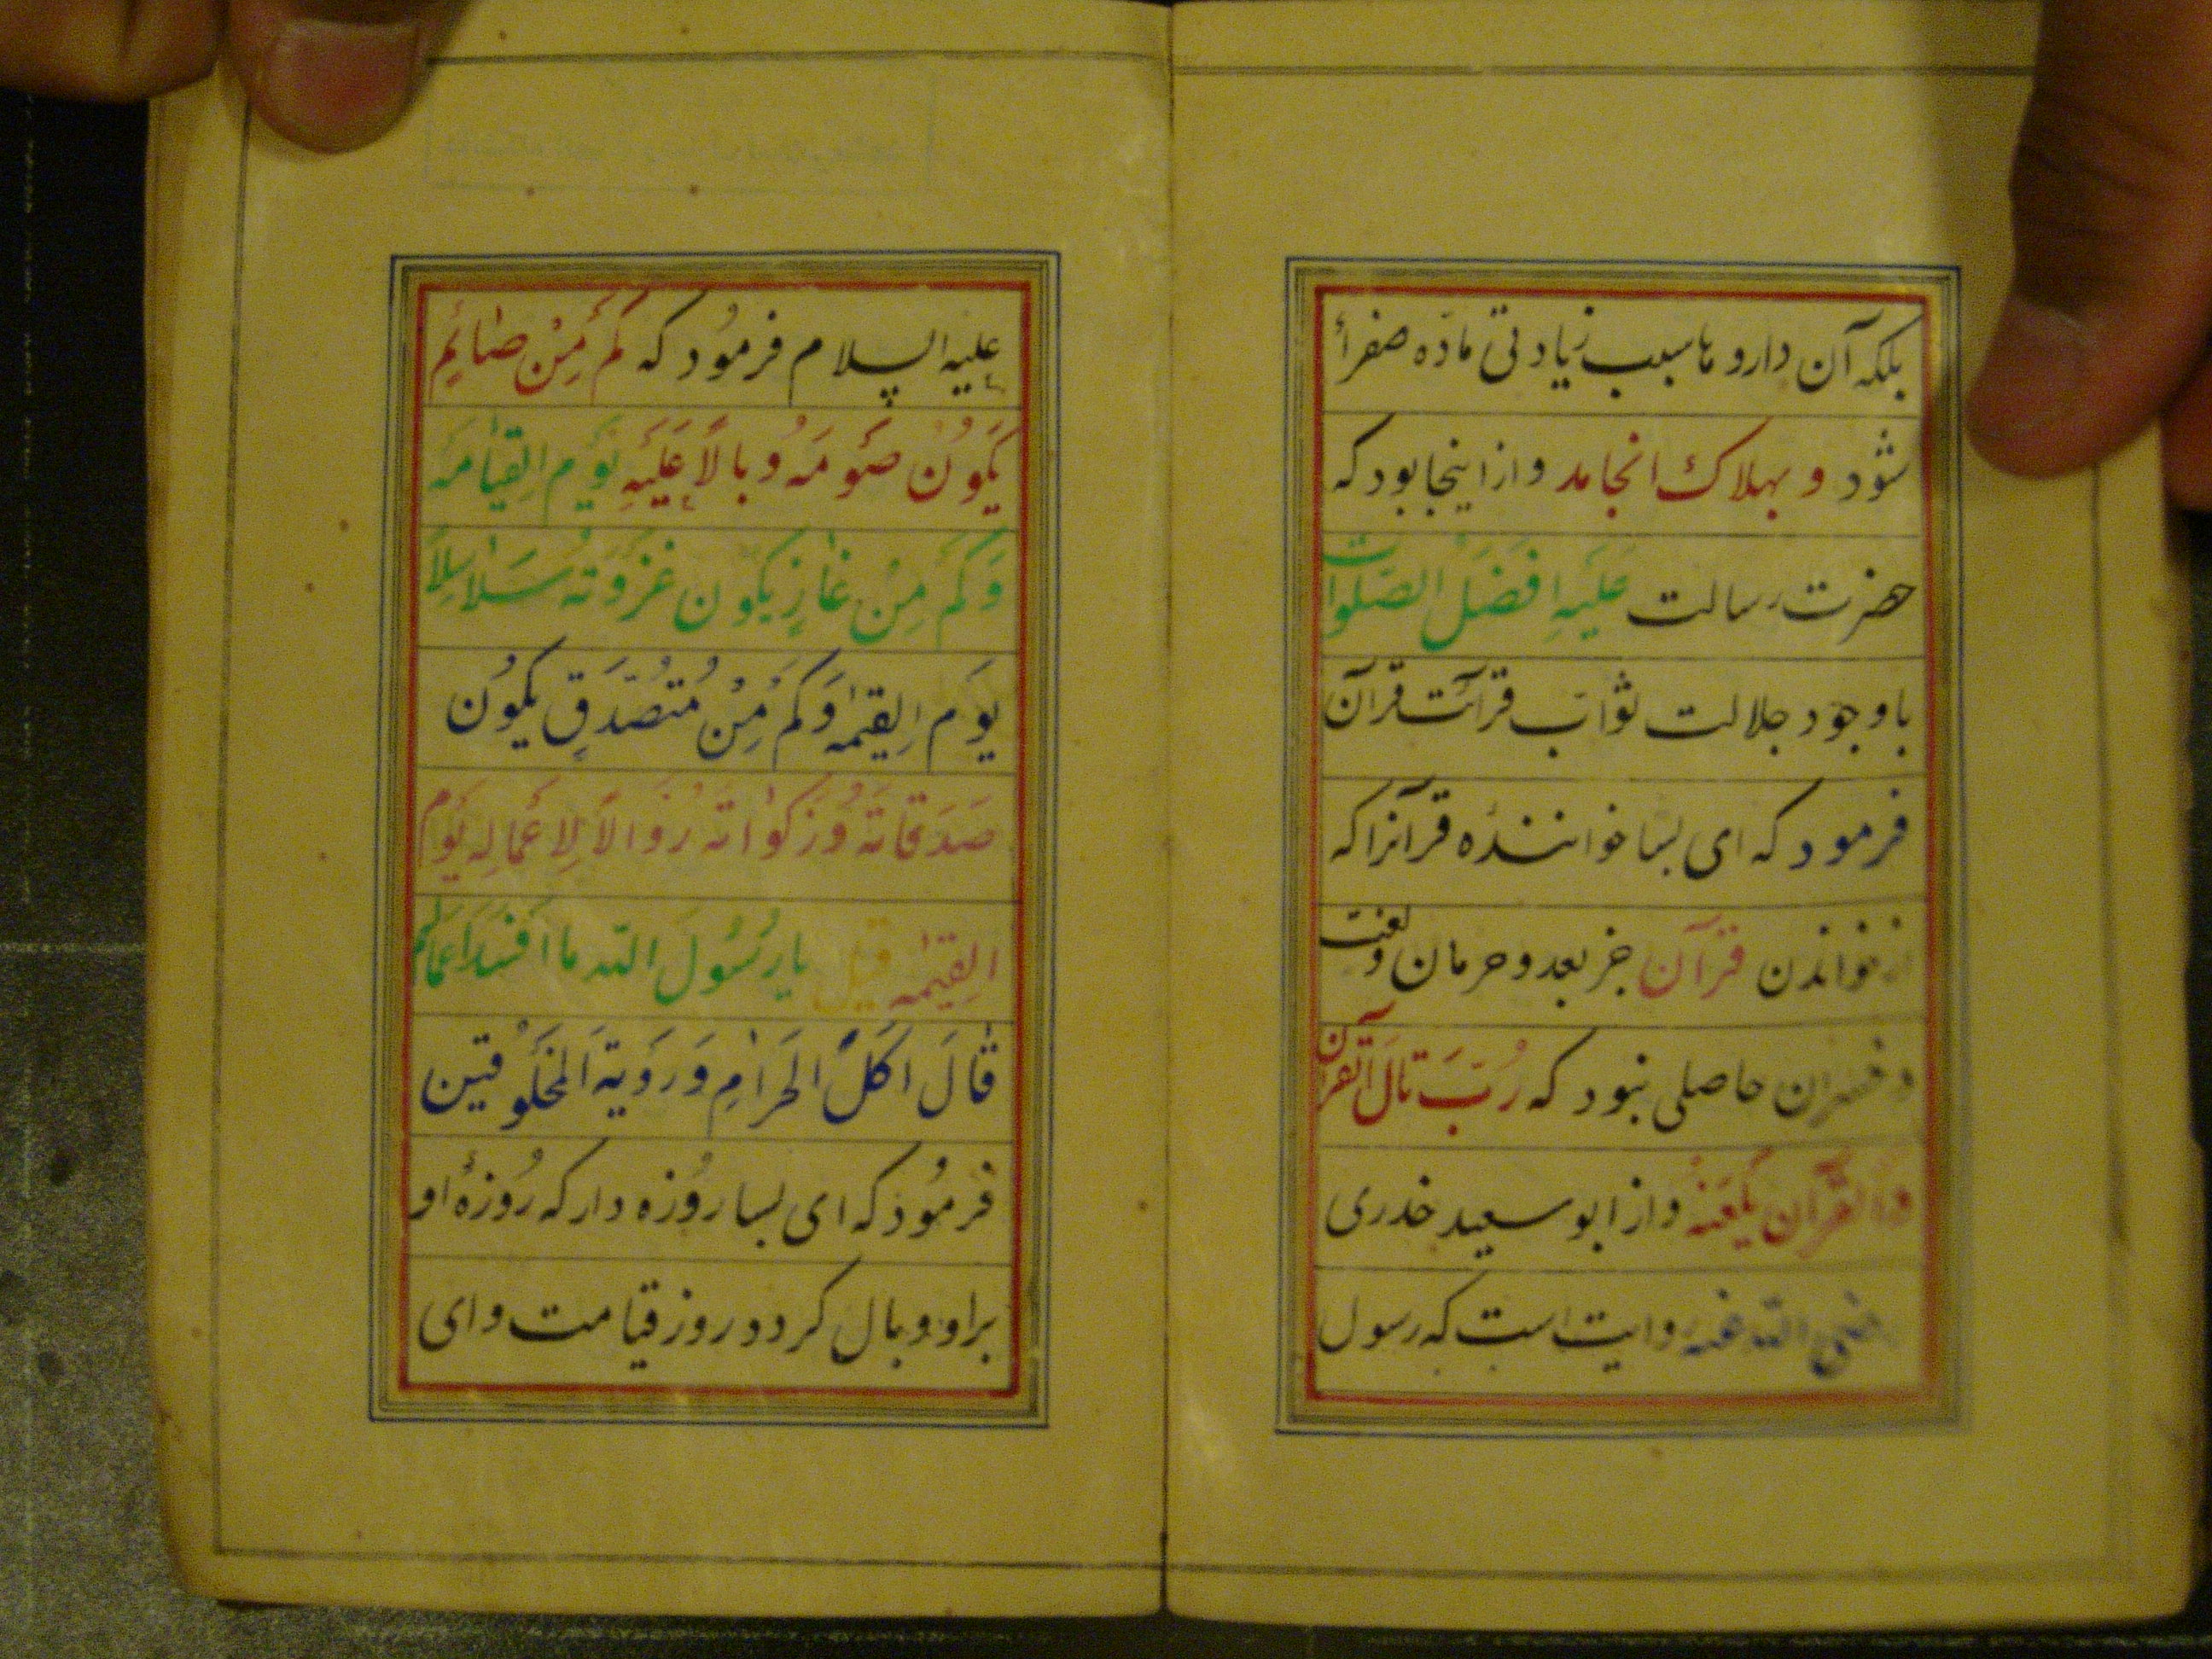 بلکه آن دارو ها سبب زیادتی مادّه صفرأ
شود و بهلاک انجامد و از اینجا بود که
حضرت رسالت عَلَیهِ افضَلُ الصّلوات
با وجود جلالت ثوابِ قرائت قرآن
فرمود که ای بسا خواننده قرآنرا که
از خواندن قرآن جز بعد و حرمان و لعنت
و خسران حاصلی نبود که رُبَّ تالَ القرآن
والقرآن یَلعَنهُ و از ابو سعید خدری
رضی الله عنه روایت است که رسول
علیه السلام فرمُود که کَم مِنْ صٰائِمٍ
یَکُونُ صَومَهُ وبالاً عَلَیهِ یَومَ القِیامَه
وَکَم مِنْ غٰازٍ یکون غَزوَتُهُ سَلاسِلاً
یَومَ القِیٰمه وَکَم مِنْ مُتَصَدِّقٍ یکُون
صَدَقاتَهُ وَزَکواتَهُ زَوالاً لِاَعمالِهِ یَومَ
القِیٰمه قیل یا رَسُولَ الله ما افسَدَ اَعمالَهُم
قٰالَ اکَلُ الحَرامِ وَ رَویةَ المَخلُوقین
فرمُود که ای بسا رُوزه دار که رُوزهٔ او
بر او وبال کردد روز قیامت و ای